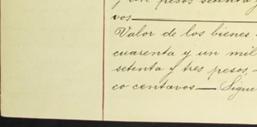 un pesos setenta y
vos
Valor de los bienes
cuarenta y un mil
setenta y tres pesos,
co centavos — Sigue